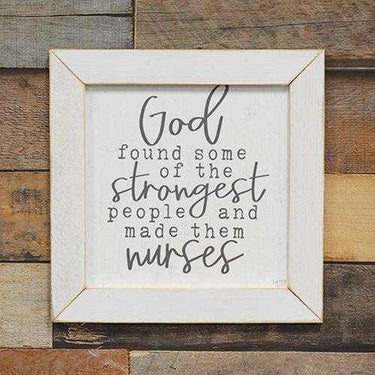 God
found some
of the
strongest
people and
made them
nurses